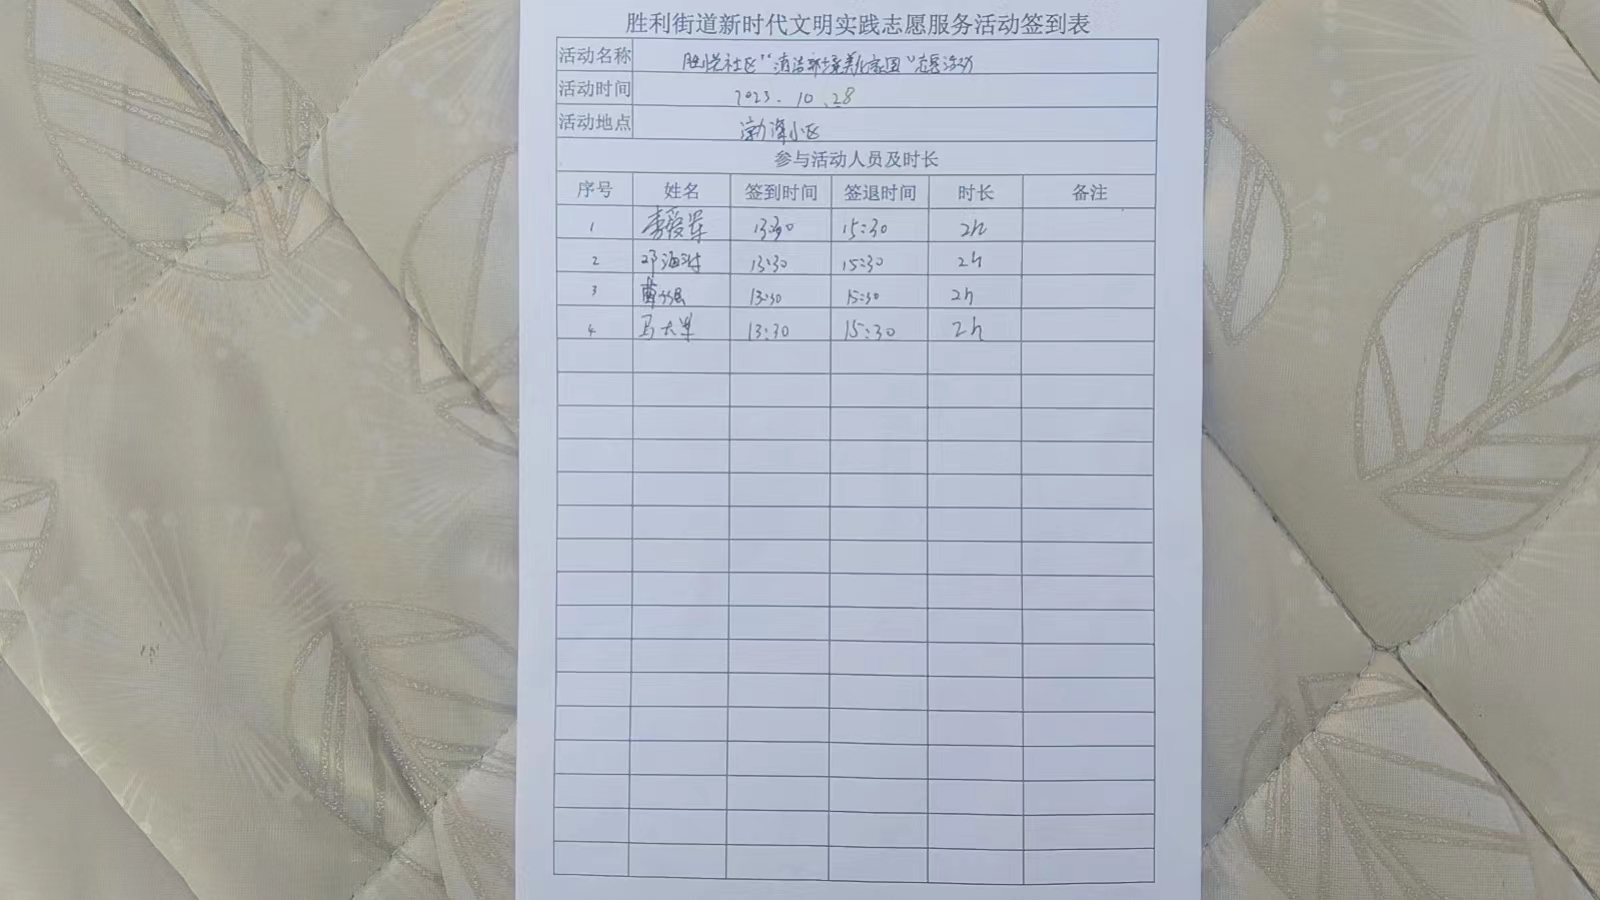 胜利街道新时代文明实践志愿服务活动签到表
活动名称 胜悦社区“清洁环境美化家园”志愿活动
活动时间 2023.10.28
活动地点 渤海小区
参与活动人员及时长
序号 姓名 签到时间 签退时间 时长 备注
1 李爱军 13:30 15:30 2h
2 邓海 13:30 15:30 2h
3 13:30 15:30 2h
4 马大军 13:30 15:30 2h